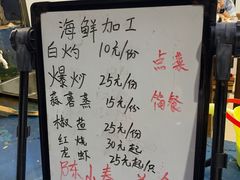 海鲜加工
白灼 10元/份
点菜
爆炒 25元/份
蒜蓉蒸 15元/份
简餐
椒盐 25元/份
红烧 30元起
龙虾 25元起/只
陈小春